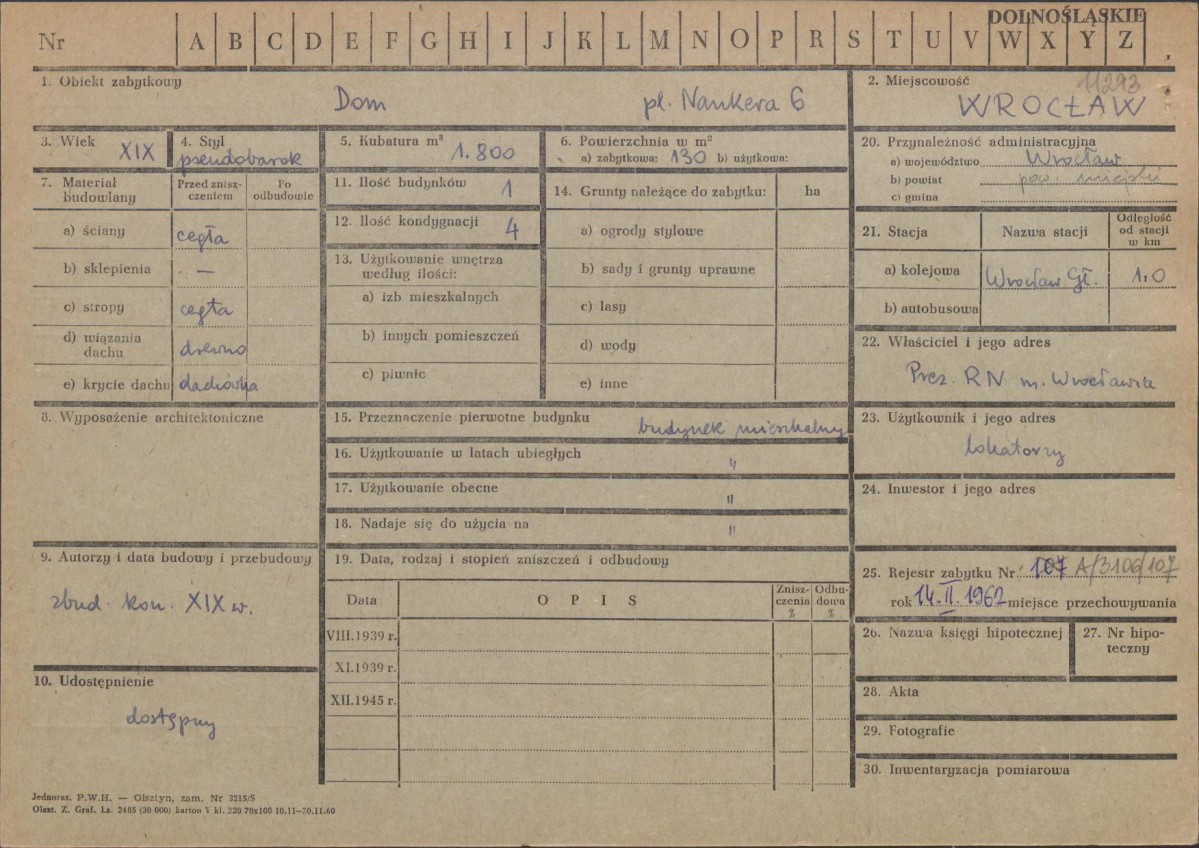 DOLNOŚLĄSKIE
Nr A B C D E F G H I J K L M N O P R S T U V W X Y Z
1. Obiekt zabytkowy
Dom pl. Nankera 6
2. Miejscowość 11293
WROCŁAW
3. Wiek XIX
4. Styl pseudobarok
5. Kubatura m³ 1.800
6. Powierzchnia w m²
a) zabytkowa: 130 b) użytkowa:
7. Materiał budowlany
Przed zniszczeniem
Po odbudowie
a) ściany cegła
b) sklepienia —
c) stropy cegła
d) wiązania dachu drewno
e) krycie dachu dachówka
8. Wyposażenie architektoniczne
9. Autorzy i data budowy i przebudowy
zbud. kon. XIX w.
10. Udostępnienie
dostępny
11. Ilość budynków 1
12. Ilość kondygnacji 4
13. Użytkowanie wnętrza
według ilości:
a) izb mieszkalnych
b) innych pomieszczeń
c) piwnic
14. Grunty należące do zabytku: ha
a) ogrody stylowe
b) sady i grunty uprawne
c) lasy
d) wody
e) inne
15. Przeznaczenie pierwotne budynku budynek mieszkalny
16. Użytkowanie w latach ubiegłych "
17. Użytkowanie obecne "
18. Nadaje się do użycia na "
19. Data, rodzaj i stopień zniszczeń i odbudowy
Data OPIS Zniszczenia % Odbudowa %
VIII.1939 r.
XI.1939 r.
XII.1945 r.
20. Przynależność administracyjna
a) województwo Wrocław
b) powiat pow. miejski
c) gmina
21. Stacja Nazwa stacji Odległość od stacji w km
a) kolejowa Wrocław Gł. 1,0
b) autobusowa
22. Właściciel i jego adres
Prez. RN m. Wrocławia
23. Użytkownik i jego adres
lokatorzy
24. Inwestor i jego adres
25. Rejestr zabytku Nr 107 A/3106/107
rok 14.II.1962 miejsce przechowywania
26. Nazwa księgi hipotecznej
27. Nr hipoteczny
28. Akta
29. Fotografie
30. Inwentaryzacja pomiarowa
Jednoraz. P.W.H. — Olsztyn, zam. Nr 3215/S
Olszt. Z. Graf. Lz. 2486 (30 000) karton V kl. 220 70x100 10.11—30.11.60